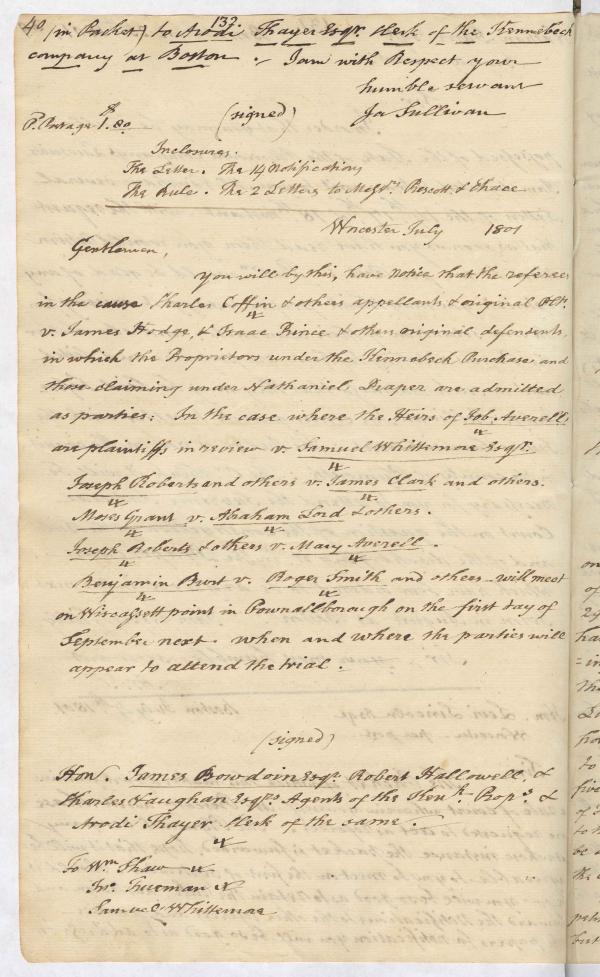 40 132.
(in Packet) to Arodi Thayer Esqr. Clerk of the Kennebeck
company at Boston. I am with Respect your
humble servant
(signed) Ja Sullivan
P. Postage $1.80
Inclosures.
The Letter. The 14 Notifications
The Rule. The 2 Letters to Messrs. Proscott & Chace
Worcester July 1801
Gentlemen,
you will by this, have notice that the referees
in the cause Charles Coffin & others appellants & original Plts.
v. James Hodge, & Isaac Prince & others original defendents,
in which the Proprietors under the Kennebeck Purchase and
those claiming under Nathaniel Draper are admitted
as parties: In the case where the Heirs of Job Averell,
are plaintiffs in review v. Samuel Whittemore Esqr.
Joseph Roberts and others v. James Clark and others.
Moses Grant v. Abraham Lord & others.
Joseph Roberts & others v. Mary Averell.
Benjamin Burt v. Roger Smith and others will meet
on Wiscassett point in Pownallborough on the first day of
September next. when and where the parties will
appear to attend the trial.
(signed)
Hon. James Bowdoin Esqr. Robert Hallowell, &
Charles Vaughan Esqrs Agents of the Kenk. Props. &
Arodi Thayer Clerk of the same.
To Wm Shaw
Jno. Trueman
Samuel Whittemore